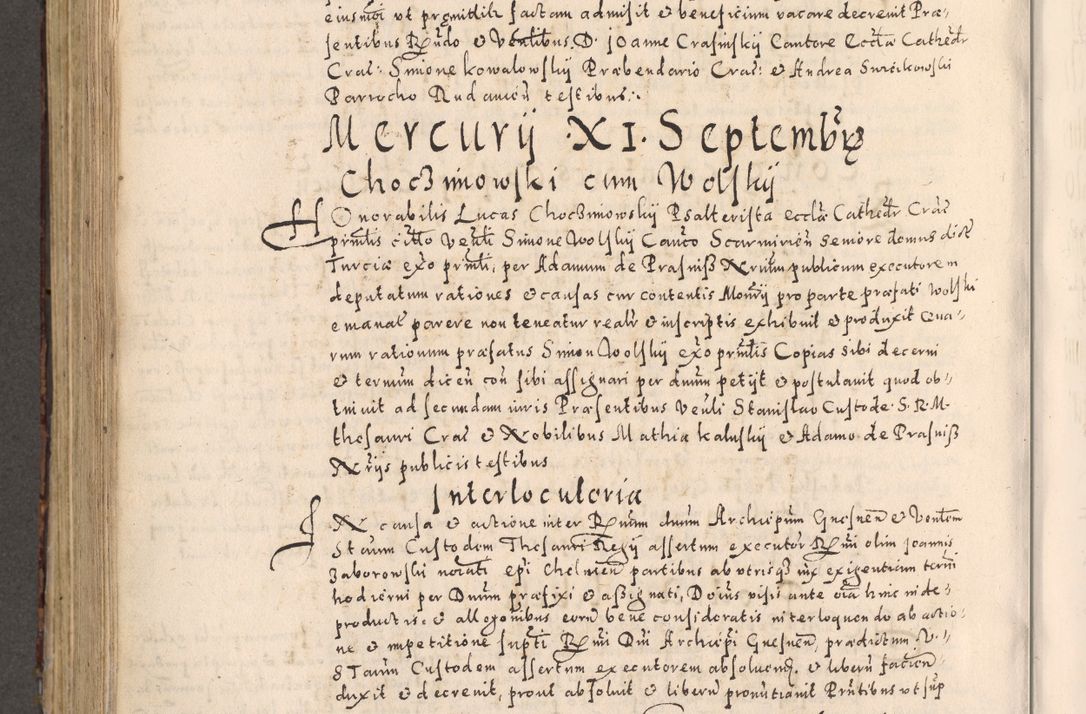 eiusmoi ut promittit factam admisit et beneficium vacare decrevit Præ-
sentibus Rndo et Venlibus D. Joanne Crasinskij Cantore Eccla Cathedr
Crac: Simone Kowalowskij Præbendario Crac: et Andrea
Parrocho testibus:.
Mercurij XI. Septembrę
Choczmowski cum Wolskij
Honorabilis Lucas Choczmowskij Psalterista Ecclæ Cathedr Crac
prntis citto Venli Simone Wolskij seniore domus dict
Turciæ exo prnti, per Adamum de Prasnisz Nrium publicum executorem
deputatum rationes et causas cur contentis pro parte præfati Wolski
emanat parere non teneatur realr et inscriptis exhibuit et produxit Qua-
rum rationum præfatus Simon Wolskij exo prntis Copias sibi decerni
et termum dicen con sibi assignari per dnum petijt et postulavit quod ob-
tinuit ad secundam iuris Præsentibus Venli Stanislao Custode S. R. M.
thesauri Crac et Nobilibus Mathia Kaluskij et Adamo de Prasnisz
Nrijs publicis testibus
Interlocutoria
In causa et actione inter Rnum dnum Archiepum Gnesnen et Venlem
Staum Custodem Thesauri Regij assertum executor Rmi olim Joannis
Zaborowskij epi Chelmen partibus ab utrisq iux exigentiam termi
hodierni per Dnum præfixi et assignati, Dnius visis ante oia hinc inde
productis et allegonibus eorum bene consideratis interloquendo ab actio-
ne et impetitione supti Rmi Dni Archiepi Gnesnen, prædictum V.
Staum Custodem assertum executorem absoluen et liberum facien
duxit et decrevit, prout absolvit et liberum pronuntiavit Prntibus ut sup